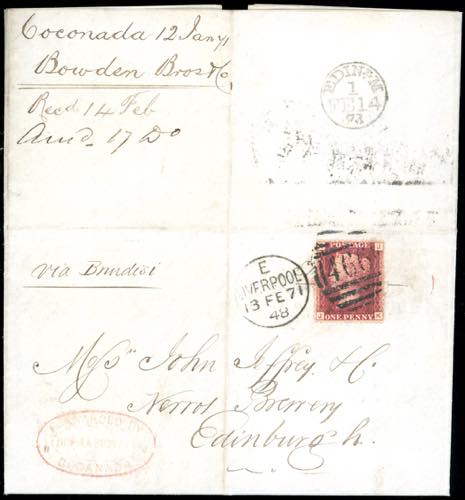 Coconada 12 Jany 71
Bowden Bros & Co.
Recd 14 Feb
Ansd 17 Do
EDINR
1
FE 14
71
Via Brindisi
E
LIVERPOOL
13 FE 71
48
466
POSTAGE
J J
J K
ONE PENNY
Mess John Jeffrey & Co
Brewery
Edinburgh.
COCANADA